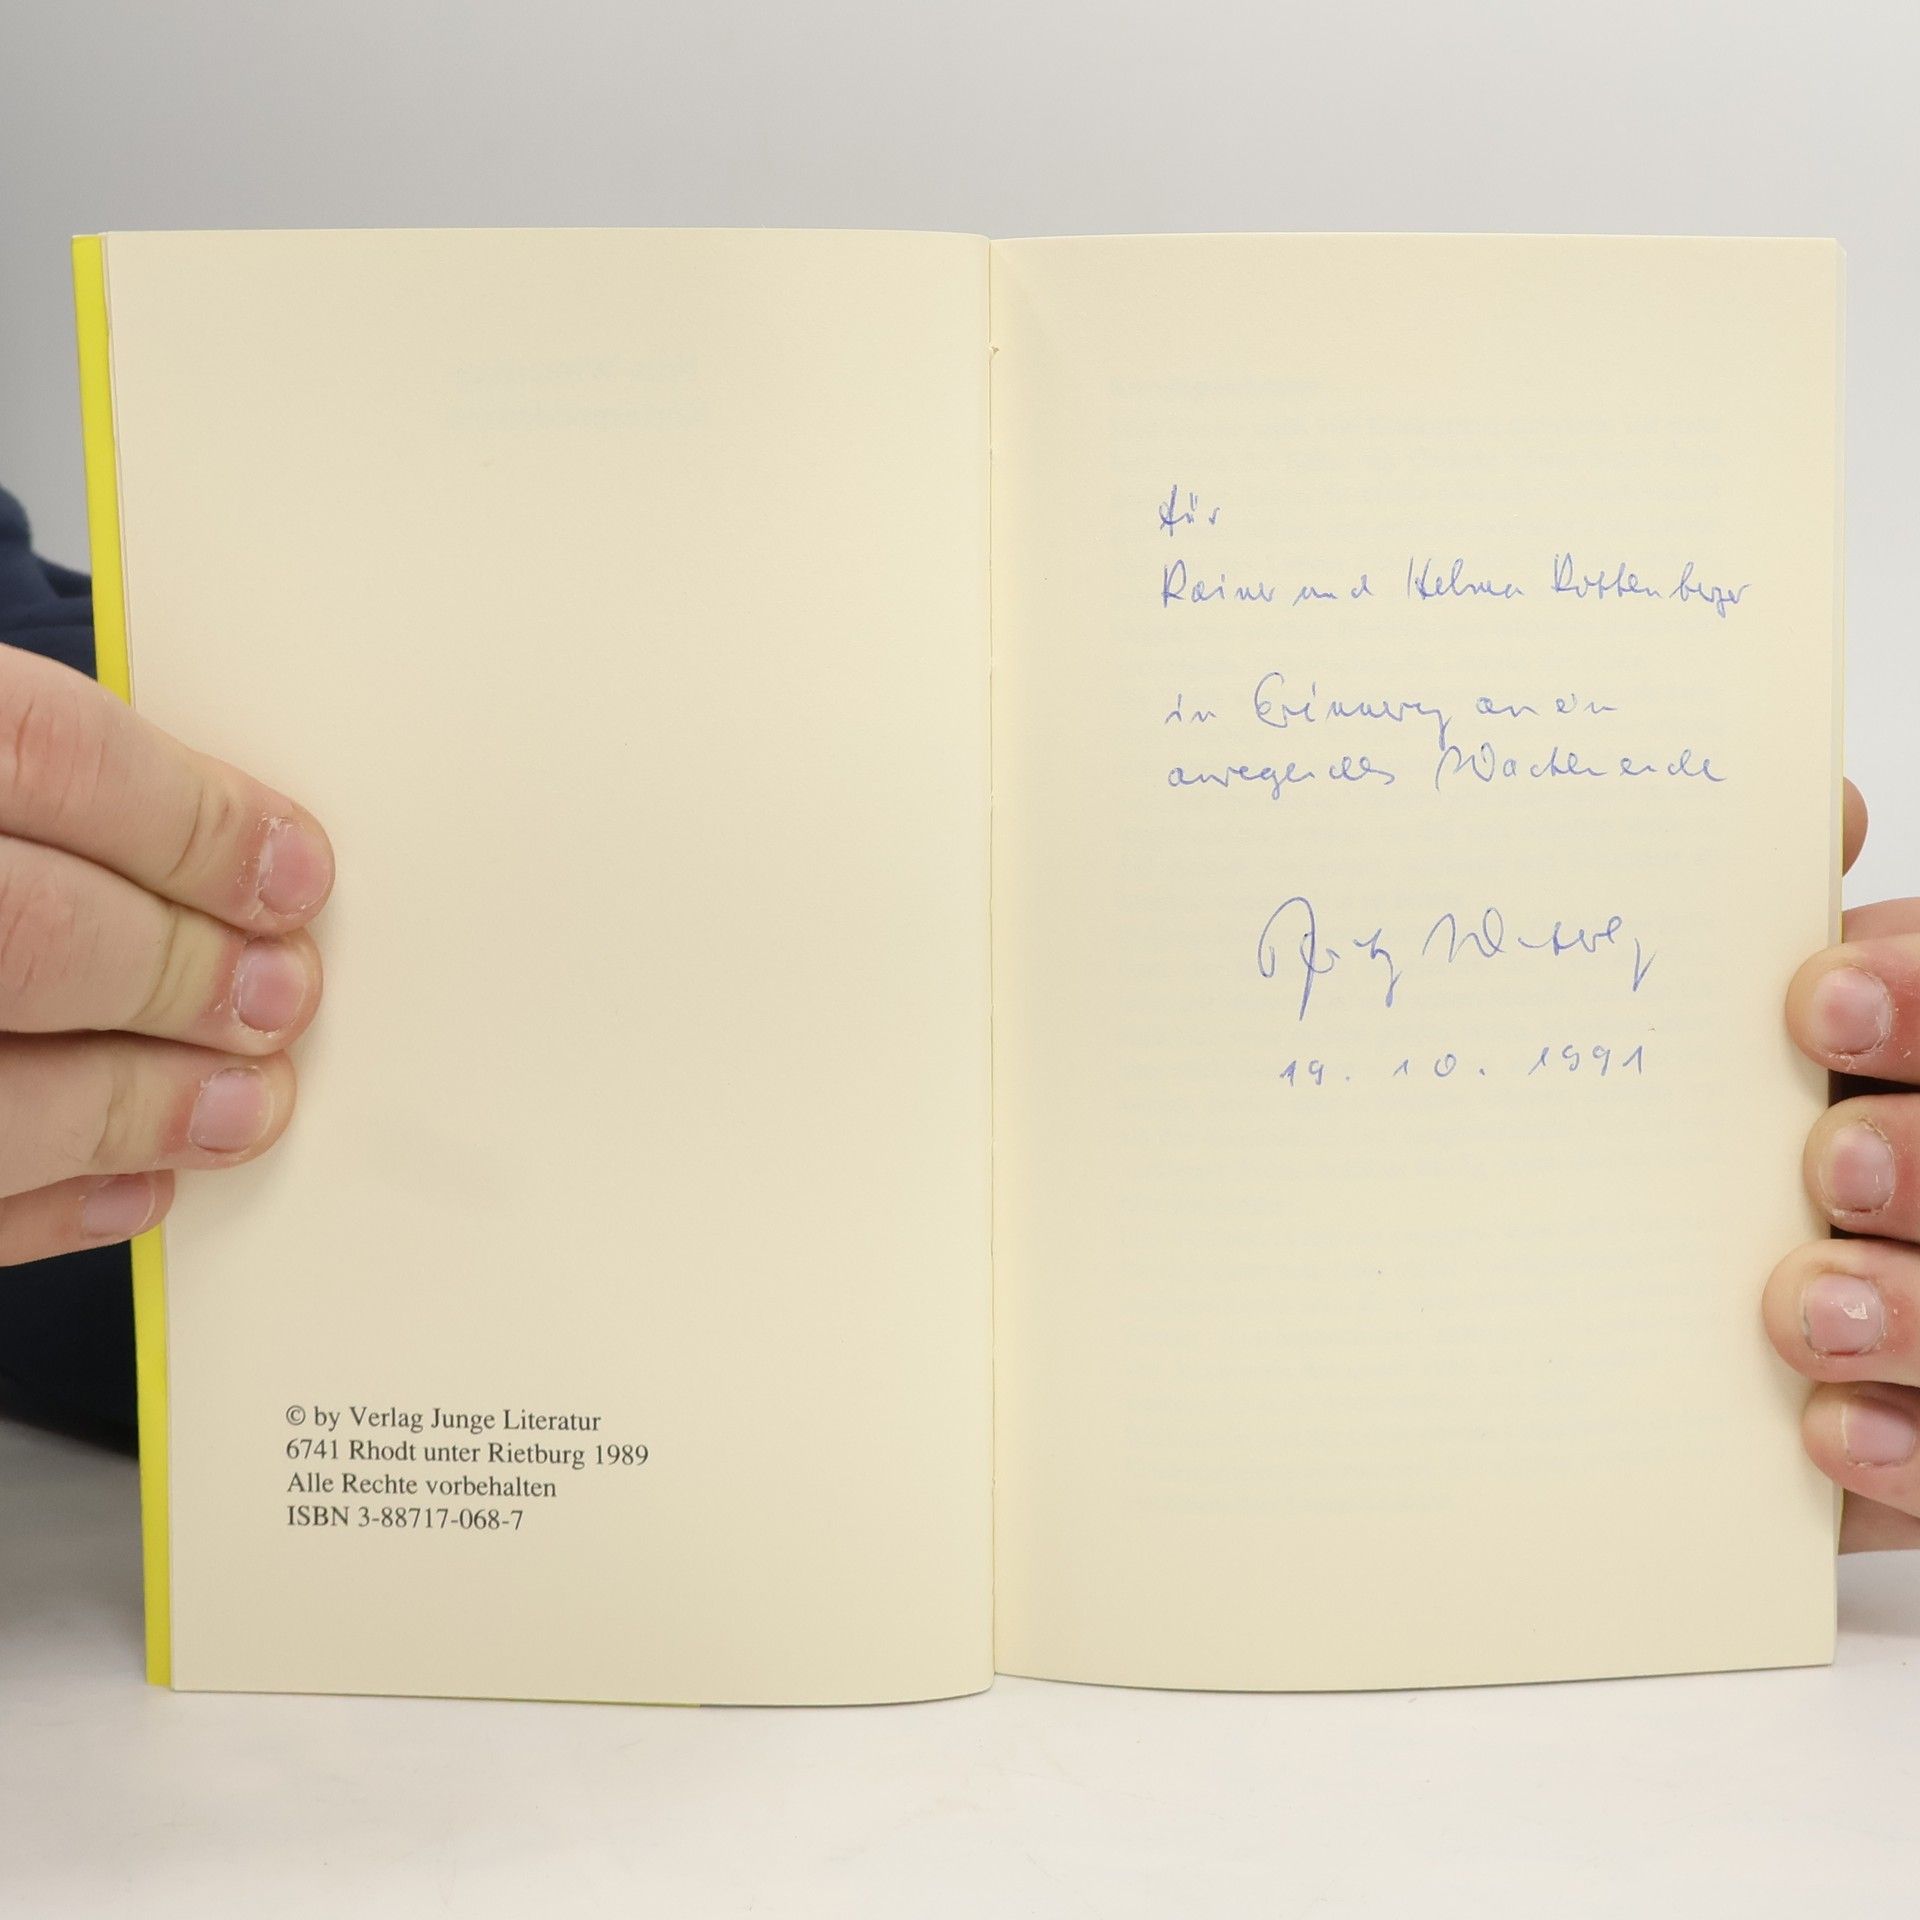 © by Verlag Junge Literatur
6741 Rhodt unter Rietburg 1989
Alle Rechte vorbehalten
ISBN 3-88717-068-7
für
Rainer und Helma Rottenberger
in Erinnerung an ein
anregendes Wochenende
Fritz
19. 10. 1991